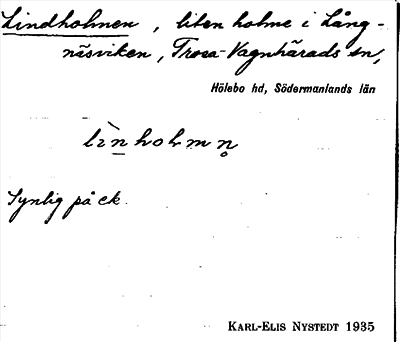 Lindholmen, liten holme i Lång-
näsviken, Trosa-Vagnhärads sn,
Hölebo hd, Södermanlands län
lìn̲holmn̥
Synlig på ek.
KARL-ELIS NYSTEDT 1935